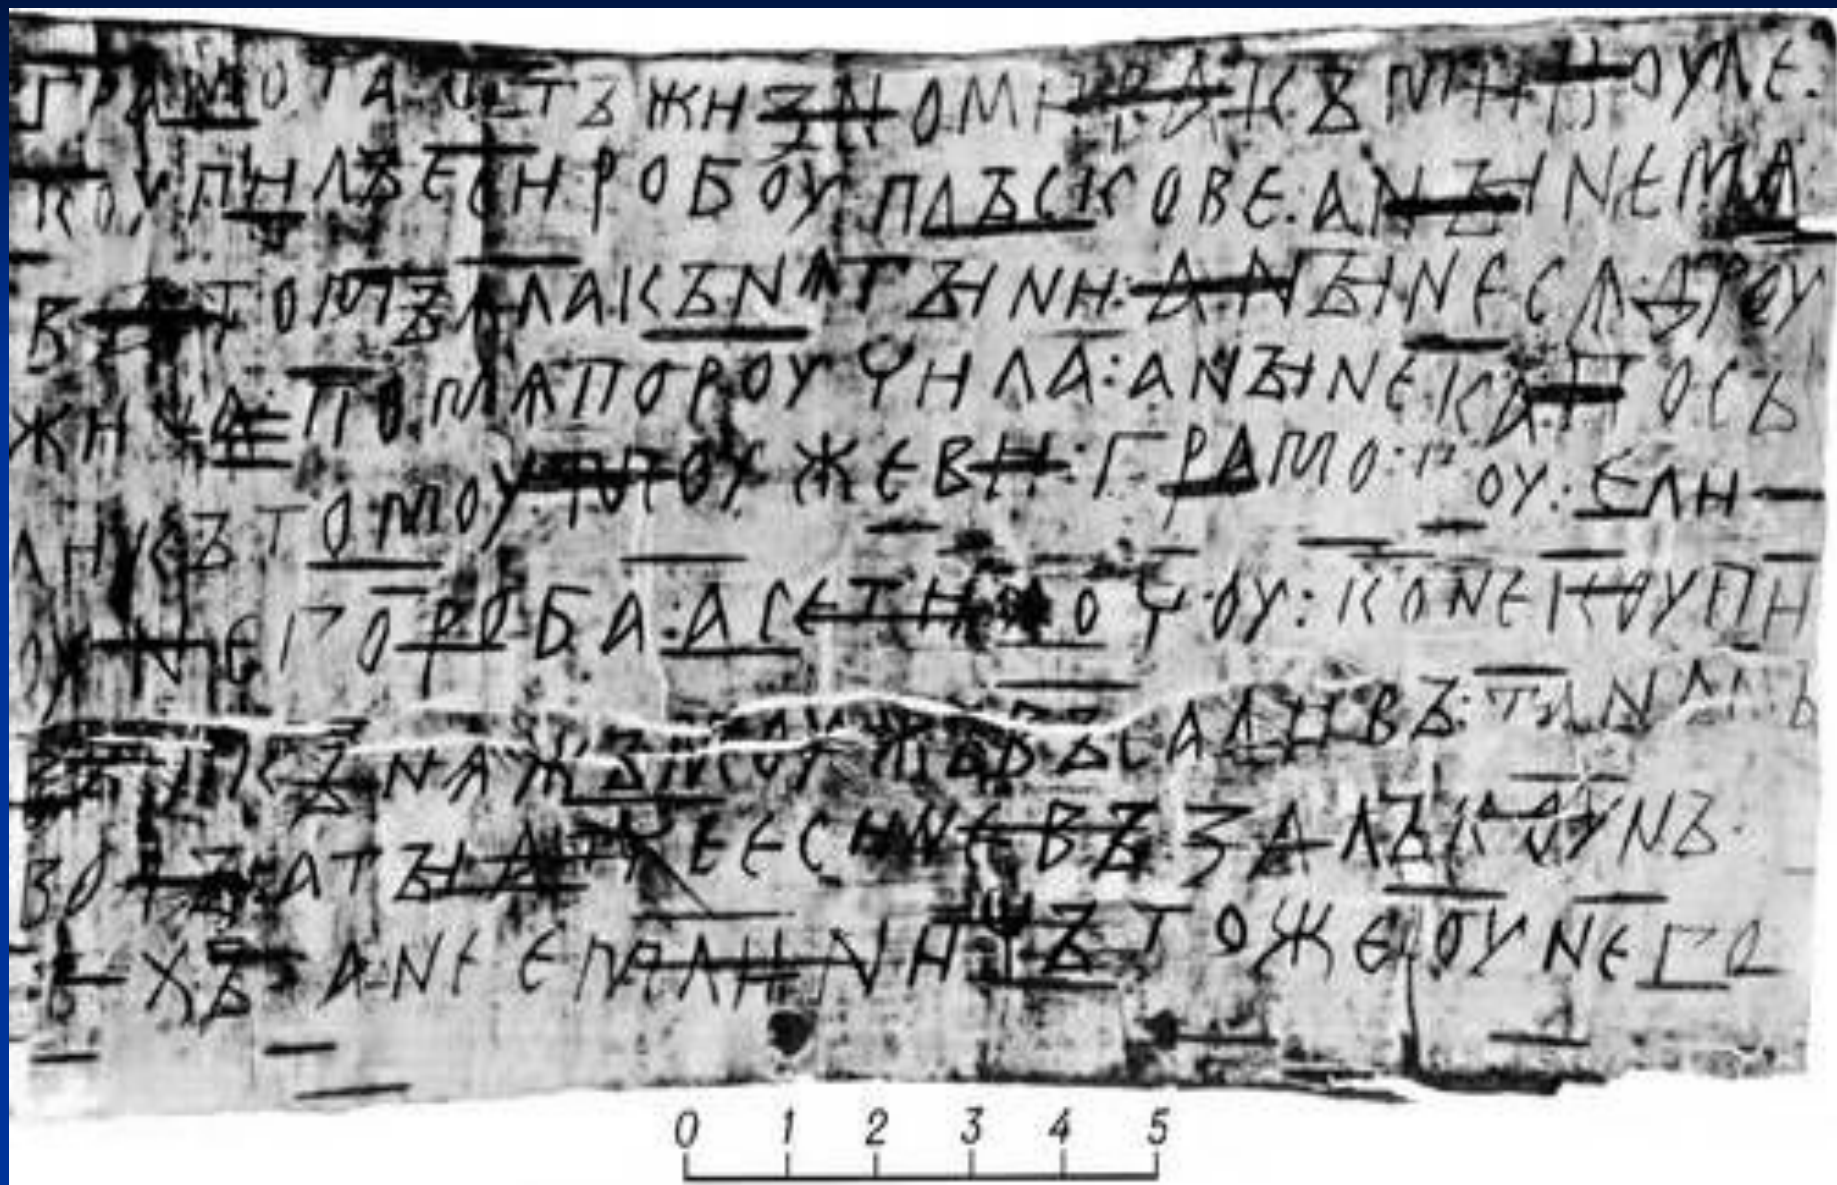 ГРАМОТА ОТЪ ЖИЗНОМИРА КЪ МИКОУЛЕ:
КОУПИЛЪ ЕСИ РОБОУ ПЛЪСКОВЕ: А НЪІНЕ МѦ
ВЪ ТОМЪ ѦЛА КЪНѦГЪІНИ: А НЪІНЕ СѦ ДРОУ
ЖИНА ПО МѦ ПОРОУЧИЛА: А НЪІНЕ КА ПОСЪ
ЛИ КЪ ТОМОУ МОУЖЕВИ: ГРАМОТОУ: ЕЛИ
ОУ НЕГО РОБА: А СЕ ТИ ХОЧОУ: КОНЕ КОУПИ
ВЪ И КЪНѦЖЪ МОУЖЪ ВЪСАДИВЪ: ТА НА СЪ
ВОДЪ: А ТЪІ АТЧЕ ЕСИ НЕ ВЪЗАЛЪ КОУНЪ
ТЕХЪ А НЕ ЕМЛИ НИЧЪТО ЖЕ ОУ НЕГО
0 1 2 3 4 5